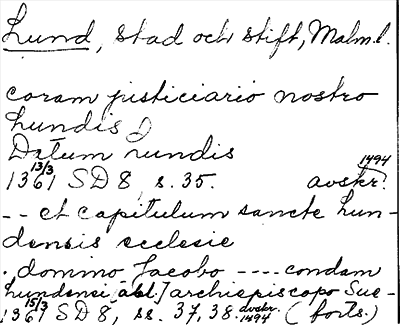 Lund, stad och stift, Malm.l.
coram justiciario nostro
Lundis
Datum Lundis
13/3 1494
1361 SD 8 s. 35. avskr.
-- et capitulum sancte Lun-
densis ecclesie
. domino Jacobo ---- condam
Lundensi [abl.] archiepiscopo Sue-
15/3
1361 SD 8, ss. 37, 38. avskr. 1494 (forts.)